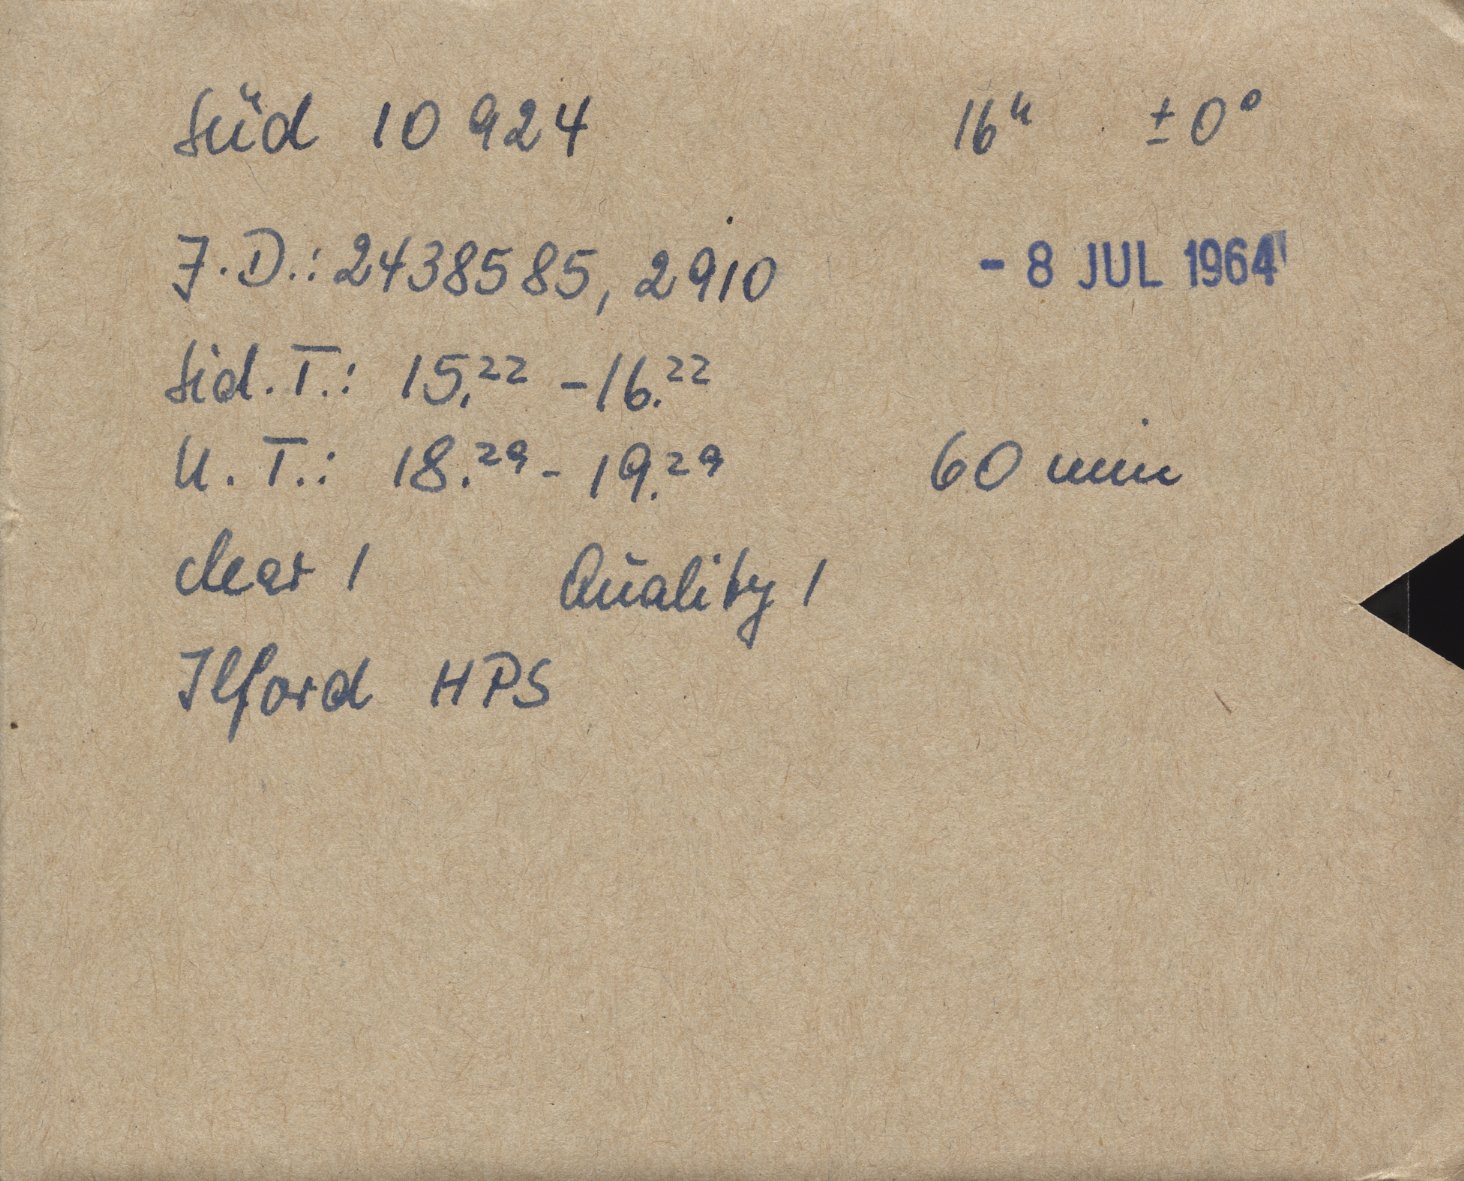 Süd 10 924 16ʰ ±0°
J.D.: 2438585, 2910 - 8 JUL 1964
Sid. T.: 15.²² - 16.²²
U. T.: 18.²⁹ - 19.²⁹ 60 min
clear 1 Quality 1
Ilford HPS